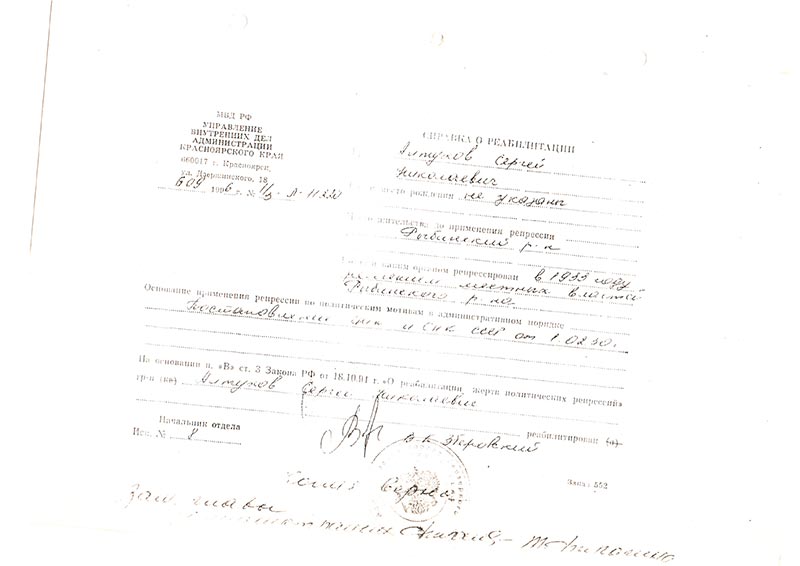 МВД РФ
УПРАВЛЕНИЕ
ВНУТРЕННИХ ДЕЛ
АДМИНИСТРАЦИИ
КРАСНОЯРСКОГО КРАЯ
660017 г. Красноярск,
ул. Дзержинского, 18
1996 г. №
СПРАВКА О РЕАБИЛИТАЦИИ
Алтухов Сергей
Николаевич
место рождения не указаны
жительства до применения репрессии
Рыбинский р-н
каким органом репрессирован в 1933 году
решением местных властей
Рыбинского р-на
Основание применения репрессии по политическим мотивам в административном порядке
Постановление ЦИК и СНК СССР от 1.02.30г.
На основании п. «В» ст. 3 Закона РФ от 18.10.91 г. «О реабилитации жертв политических репрессий»
гр-н (ка) Алтухов Сергей Николаевич
реабилитирован (а)
Начальник отдела
Исп. №
Заказ 552
Копия верна
Зам. главы